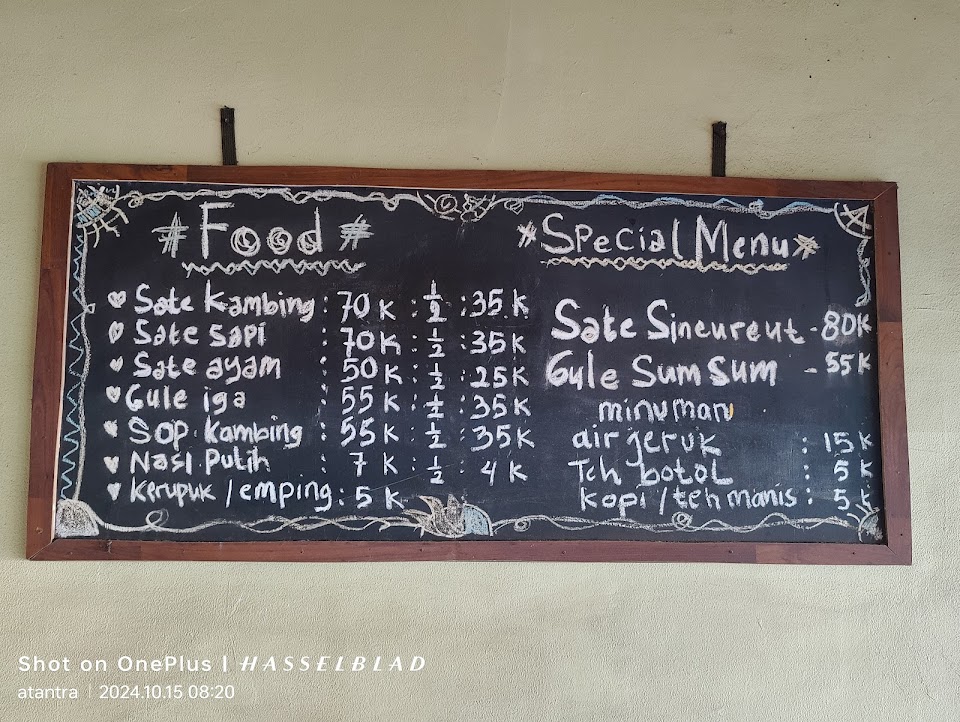 # Food #
Sate Kambing : 70 K : 1/2 : 35 K
Sate Sapi : 70 K : 1/2 : 35 K
Sate ayam : 50 K : 1/2 : 25 K
Gule iga : 55 K : 1/2 : 35 K
SOP Kambing : 55 K : 1/2 : 35 K
Nasi Putih : 7 K : 1/2 4 K
Kerupuk / emping : 5 K
* Special Menu *
Sate Sineureut - 80K
Gule Sum Sum - 55 K
minuman
air jeruk : 15 K
Teh botol : 5 K
kopi / teh manis : 5 K
Shot on OnePlus | HASSELBLAD
atantra | 2024.10.15 08:20